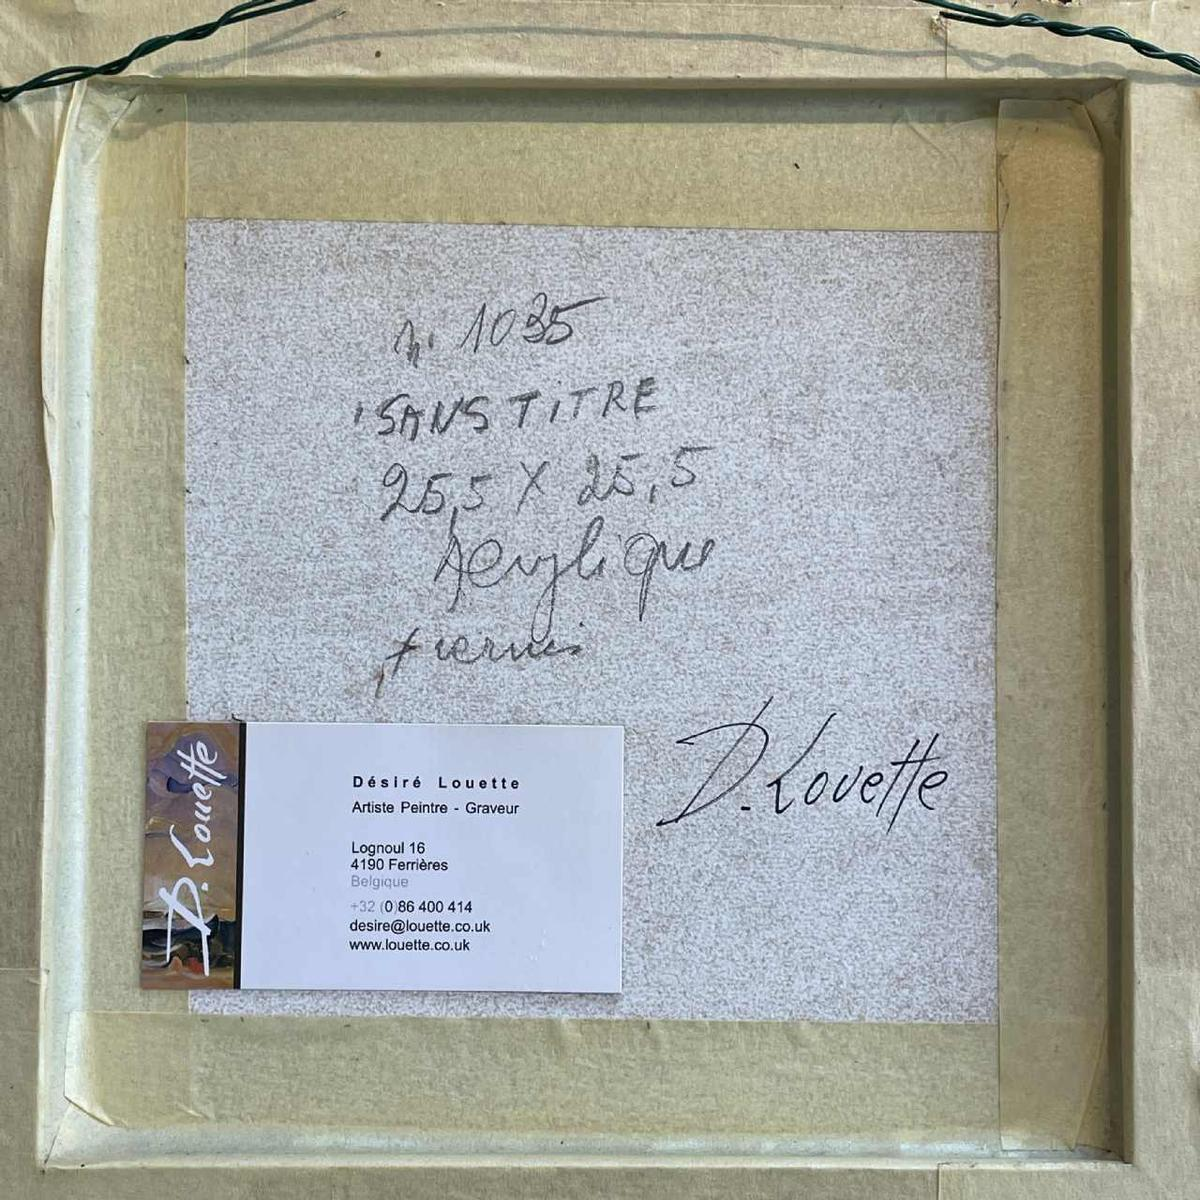 n. 1035
'SANS TITRE
25,5 X 25,5
Acrylique
+ vernis
D. Louette
D. Louette
Désiré Louette
Artiste Peintre - Graveur
Lognoul 16
4190 Ferrières
Belgique
+32 (0)86 400 414
desire@louette.co.uk
www.louette.co.uk